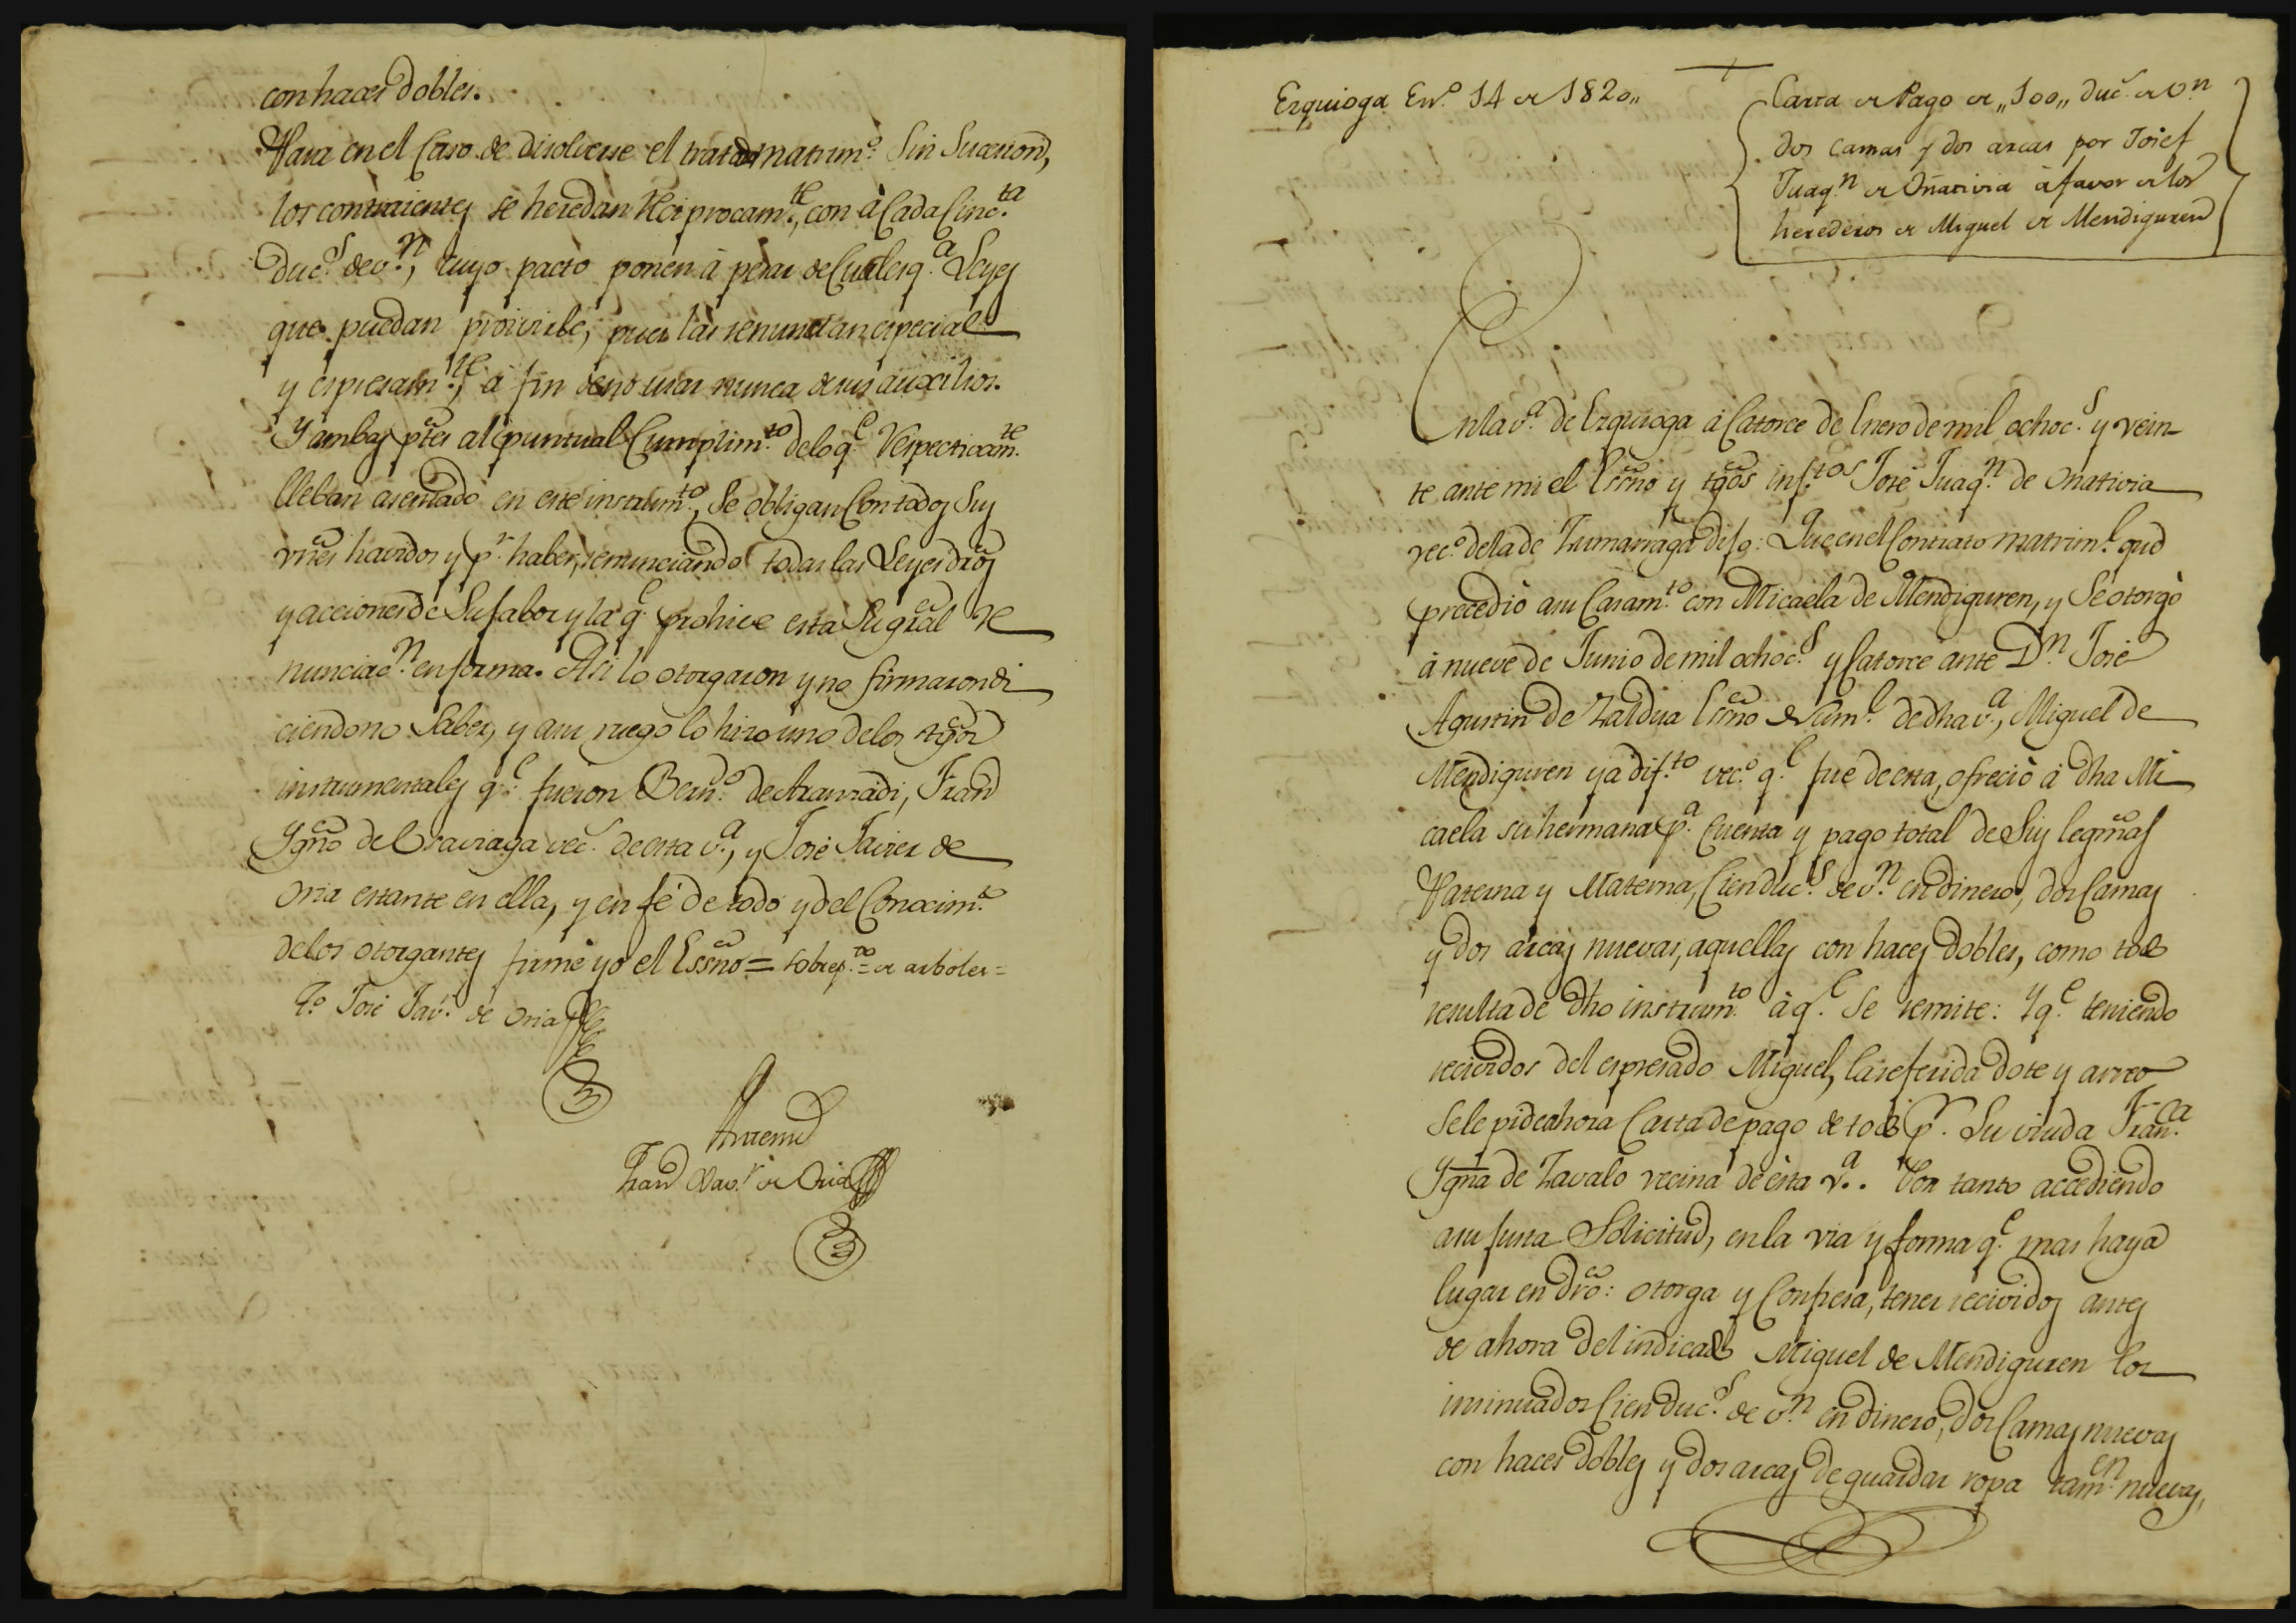 con haces dobles.
Para en el Caso de disolverse el tratado matrim.o Sin Sucesion,
los contraientes se heredan Reciprocam.te, con à Cada Cinc.ta
duc.s de v.n, cuyo pacto ponen à pesar de Cualesq.a Leyes
que puedan proivirle, pues las renuncian especial
y espresam.te, à fin de no usar nunca de sus auxilios.
Y ambas ptes al puntual Cumplim.to de lo q.e Respectivam.te
lleban asentado en este instrum.to, Se obligan Con todos Sus
vnes havidos y p.r haber, renunciando todas las Leyes dros
y acciones de Su fabor y la q.e prohive esta Su gral Re
nunciac.n en forma. Asi lo otorgaron y no firmaron di
ciendo no Saber, y a su ruego lo hizo uno de los tgos
instrumentales q.e fueron Bern.o de Aramridi, Fran.co
Ygno de Oraviaga vec.s de esta v.a, y José Javier de
Oria estante en ella, y en fé de todo y del Conocim.to
de los otorgantes firmé yo el Essno = sobrep.do = de arboles =
T.o José Jav.r de Oria
Antemi
Fran.co Xav.r de Oria
Ezquioga En.o 14 de 1820,,
Carta de Pago de ,,100,, duc.s de v.n
dos camas y dos arcas por Josef
Juaq.n de Oñativia à favor de los
herederos de Miguel de Mendiguren
En la v.a de Ezquioga à Catorce de Enero de mil ochoc.s y vein-
te ante mi el Essno y tgos insf.tos José Juaq.n de Onativia
vec.o de la de Zumarraga dijo: Que en el Contrato matrim.l que
precedió a su Casam.to con Micaela de Mendiguren, y Se otorgó
à nueve de Junio de mil ochoc.s y Catorce ante D.n José
Agustin de Zaldua Essno de Num.o de dha v.a, Miguel de
Mendiguren ya dif.to vec.o q.e fue de esta, ofreció à dha Mi
caela su hermana p.a Cuenta y pago total de Sus legmas
Paterna y Materna, Cien duc.s de v.n en dinero, dos Camas
y dos arcas nuevas, aquellas con haces dobles, como todo
resulta de dho instrum.to à q.e Se remite: Y q.e teniendo
recividos del espresado Miguel, la referida dote y arreo
Se le pide ahora Carta de pago de todo p.r Su viuda Fran.ca
Ygna de Zavalo vecina de esta v.a. Por tanto accediendo
a su justa Solicitud, en la via y forma q.e mas haya
lugar en dro: otorga y Confiesa, tener recividos antes
de ahora del indicado Miguel de Mendiguren los
insinuados Cien duc.s de v.n en dinero, dos Camas nuevas
con haces dobles y dos arcas de guardar ropa tam.en nuevas,